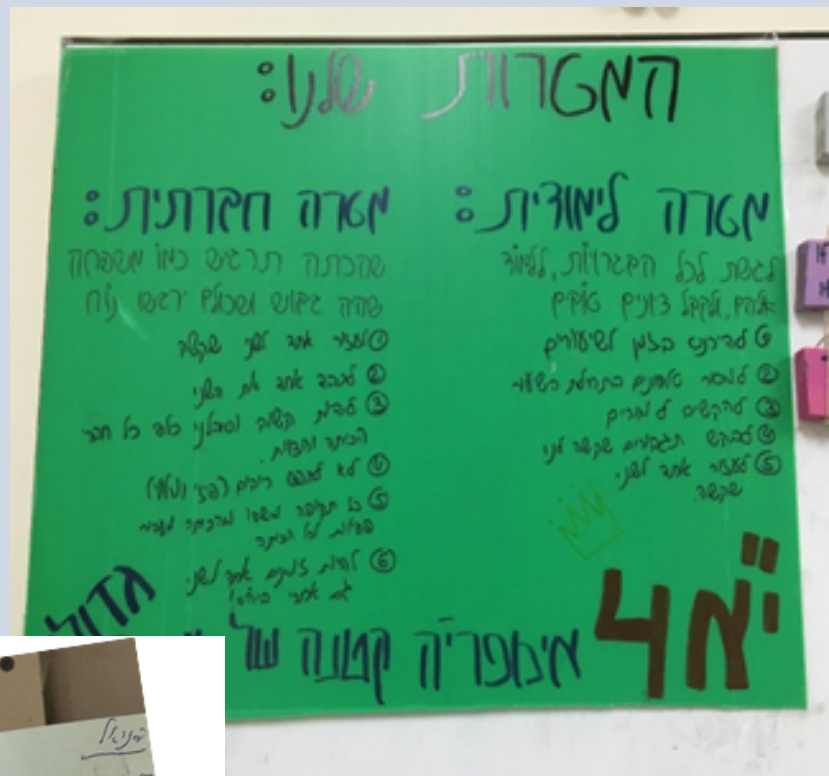 המטרות שלנו:
מטרה לימודית:
לגשת לכל הבגרויות, ללמוד
אליהם, ולקבל ציונים טובים
① להיכנס בזמן לשיעורים
② למסור טלפונים בתחילת השיעור
③ להקשיב למורים
④ לבקש תגבורים שקשה לנו
⑤ לעזור אחד לשני
שקשה.
מטרה חברתית:
שהכתה תרגיש כמו משפחה
שיהיה גיבוש ושכולם ירגישו נוח
① לעזור אחד לשני שקשה
② לכבד אחד את השני
③ להיות קשוב וסבלני כלפי כל חברי
הכיתה והצוות.
④ לא לריב
⑤ כל תקופה מישהו מהכיתה מעביר
פעילות לכל הכיתה
⑥ להיות זמינים אחד לשני
גם אחרי
י"א 4
אימפריה קטנה של
גדול
דניאל